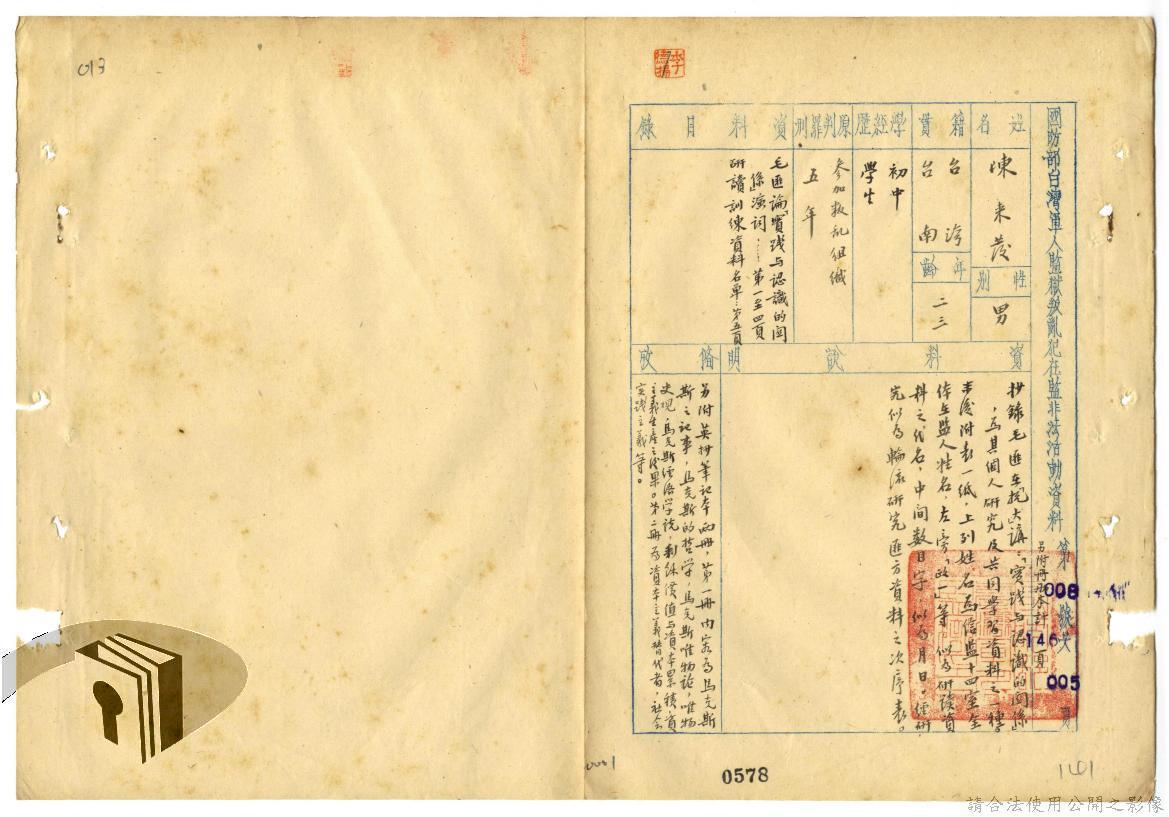 013
國防部台灣軍人監獄叛亂犯在監非法活動資料
第 008 號共 146 頁
另附冊
005 頁
姓名
陳來發
性別
男
籍貫
台灣
台南
年齡
二三
學經歷
初中
學生
原判罪刑
參加叛乱組織
五年
資料目錄
毛匪論「實踐与認識的関
係」演詞……第一至四頁
研讀訓練資料名單…第五頁
資料說明
抄錄毛匪在抗大講:「實踐与認識的関係」
,為其個人研究及共同學習資料之一種。
末後附表一紙,上列姓名為信監十四室全
体在監人姓名,左旁「政一」等,似為研讀資
料之代名,中间數目字,似為月日,
究似為輪流研究匪方資料之次序表。
備攷
另附英抄筆記本兩冊,第一冊内容為馬克斯
斯之記事,馬克斯的哲学,馬克斯唯物論,唯物
史观,馬克斯經济学說,剩餘價值与資本累積,資
主義生產之後果。第二冊為資本主義替代者,社会
实践主義等。
0001
0578
1401
請合法使用公開之影像